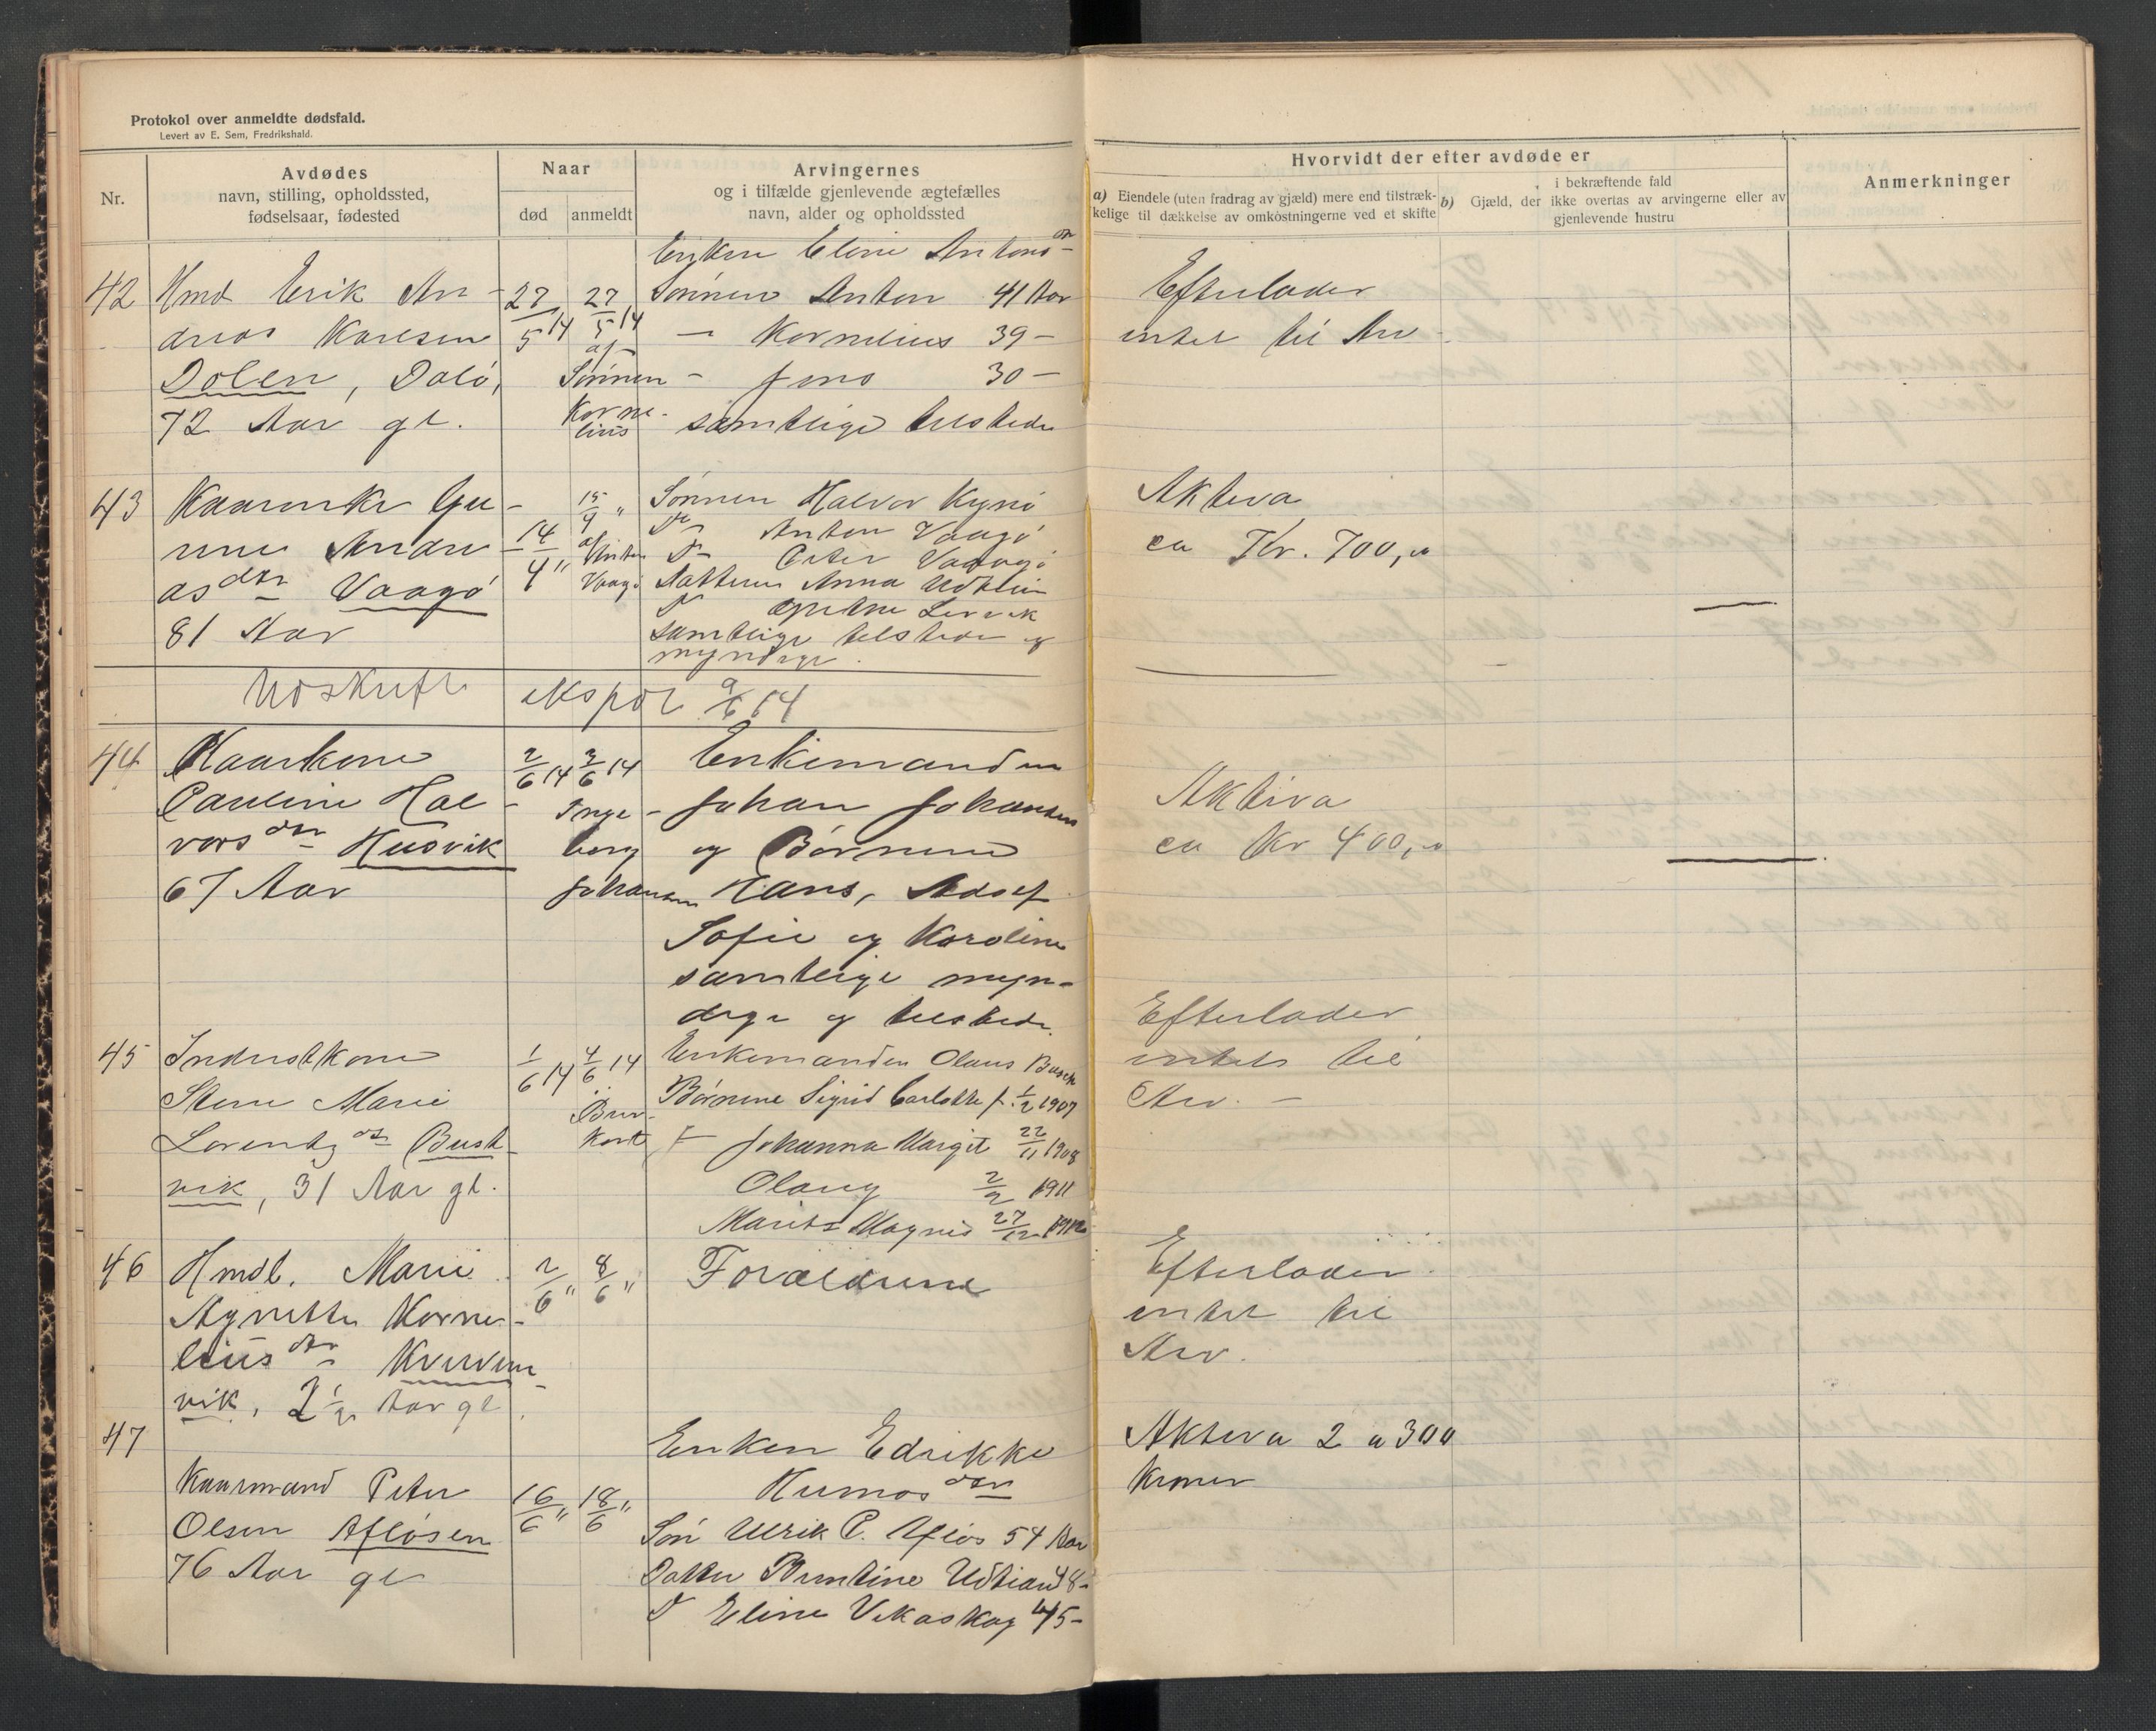 Protokol over anmeldte dødsfald.
Levert av E. Sem, Fredrikshald.
Nr.
Avdødes
navn, stilling, opholdssted,
fødselsaar, fødested
Naar
død
anmeldt
Arvingernes
og i tilfælde gjenlevende ægtefælles
navn, alder og opholdssted
Hvorvidt der efter avdøde er
a) Eiendele (uten fradrag av gjæld) mere end tilstræk-
kelige til dækkelse av omkostningerne ved et skifte
b) Gjæld, der
i bekræftende fald
ikke overtas av arvingerne eller av
gjenlevende hustru
Anmerkninger
42
Hmd Erik An-
dreas Karlsen
Dolen, Dolö,
72 Aar gl.
27/5 14
27/5 14
af
Sönnen
Korne-
lius
Enken Eline Antons dr
Sönnen Anton 41 Aar
— Kornelius 39 —
— Jens 30 —
samtlige tilstede
Efterlader
intet til Arv
43
Kaarenke Gu-
rine Andre-
as dtr Vaagö
81 Aar
14/4 "
15/4 "
af
Anton
Vaagö
Sönnen Halvor Kynö
Do Anton Vaagö
Do Peter Vaagö
Datteren Anna Udtian
D Grethe Lervik
samtlige tilstede og
myndige.
Aktiva
ca Kr. 700,00
—
Udskrift ekspd 9/6 14
44
Kaarkone
Pauline Hal-
vors dtr Husvik
67 Aar
2/6 14
3/6 14
Inge-
borg
Johansen
Enkemanden
Johan Johansen
og Börnene
Hans, Adolf
Sofie og Karoline
samtlige myn-
dige og tilstede.
Aktiva
ca Kr 400,00
—
45
Inderstkone
Stene Marie
Lorentz dtr Bust-
vik, 31 Aar gl.
1/6 14
4/6 14
Brev-
kort
Enkemanden Olaus
Börnene Sigrid Carlotte f. 1/2 1907
Johanna Margit 22/11 1908
Olaug 2/2 1911
Marits Magnus 27/12 1912
Efterlader
intet til
Arv. —
46
Hmdb. Marie
Agnethe Korne-
lius dtr Kverven-
vik, 2 1/2 Aar gl.
2/6 "
8/6 "
Forældrene
Efterlader
intet til
Arv.
47
Kaarmand Peter
Olsen Aflösen
76 Aar gl
16/6 "
18/6 "
Enken Edrikke
Rumos dtr
Sön Ulrik P. Aflös 54 Aar
Datter Berntine Udtian 48 -
D Eline Vikaskag 45 -
Aktiva 2 a 300
Kroner